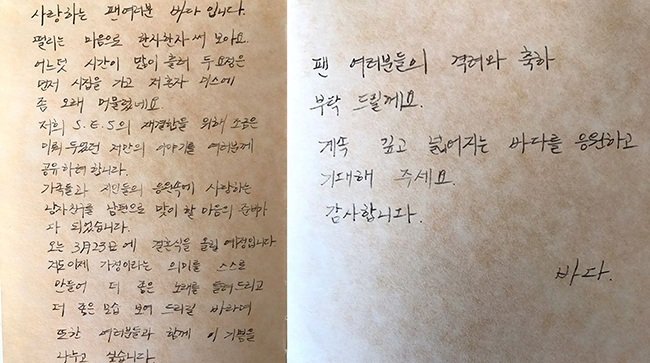 사랑하는 팬여러분 바다입니다.
떨리는 마음으로 한자한자 써 보아요.
어느덧 시간이 많이 흘러 두 요정은
먼저 시집을 가고 저 혼자 덕스에
좀 오래 머물렀네요
저희 S.E.S의 재결합을 위해 조금은
미뤄 두었던 저만의 이야기를 여러분께
공유하려 합니다.
가족들과 지인들의 응원속에 사랑하는
남자친구를 남편으로 맞이 할 마음의 준비가
다 되었습니다.
오는 3월23일에 결혼식을 올릴 예정입니다
저도 이제 가정이라는 의미를 스스로
만들어 더 좋은 노래를 들려드리고
더 좋은 모습 보여 드리길 바라며
또한 여러분들과 함께 이 기쁨을
나누고 싶습니다.
팬 여러분들의 격려와 축하
부탁 드릴께요.
계속 깊고 넓어지는 바다를 응원하고
기대해 주세요.
감사합니다.
바다.